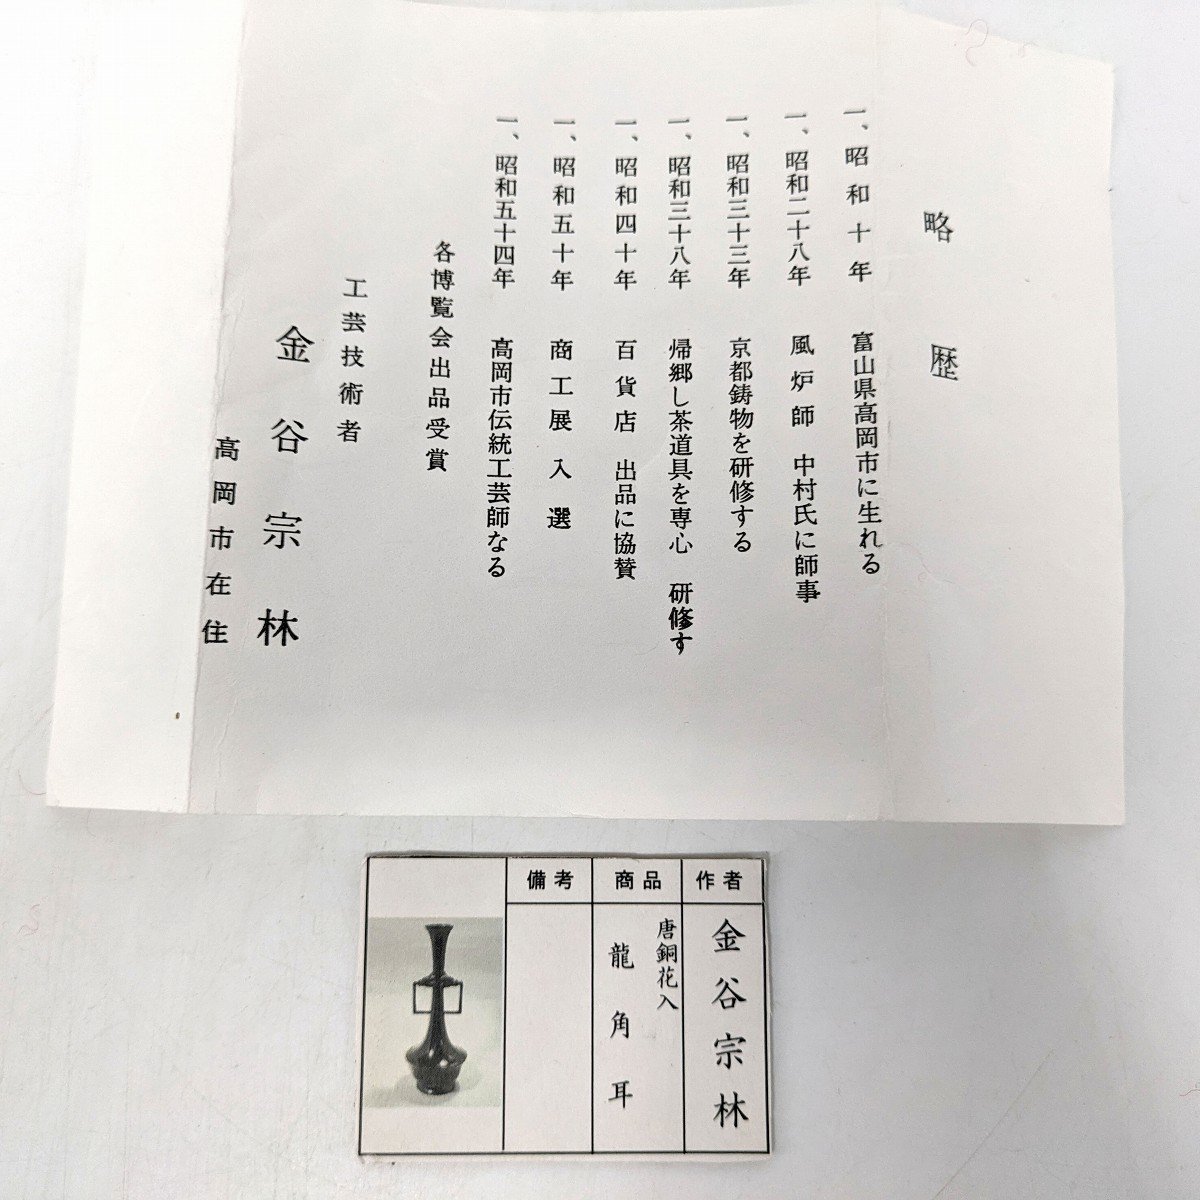 略歴
一、昭和十年 富山県高岡市に生れる
一、昭和二十八年 風炉師 中村氏に師事
一、昭和三十三年 京都鋳物を研修する
一、昭和三十八年 帰郷し茶道具を専心 研修す
一、昭和四十年 百貨店 出品に協賛
一、昭和五十年 商工展入選
一、昭和五十四年 高岡市伝統工芸師なる
各博覧会出品受賞
工芸技術者
金谷宗林
高岡市在住
作者
金谷宗林
商品
唐銅花入
龍角耳
備考